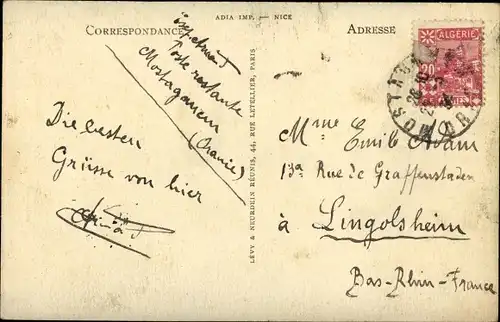 ADIA IMP. — NICE
CORRESPONDANCE
ADRESSE
Poste restante
Mostaganem
(Oranie)
Die besten
Grüsse von hier
LÉVY & NEURDEIN RÉUNIS, 44, RUE LETELLIER, PARIS
ALGÉRIE
Mme Emile Adam
13a Rue de Graffenstaden
à Lingolsheim
Bas-Rhin-France